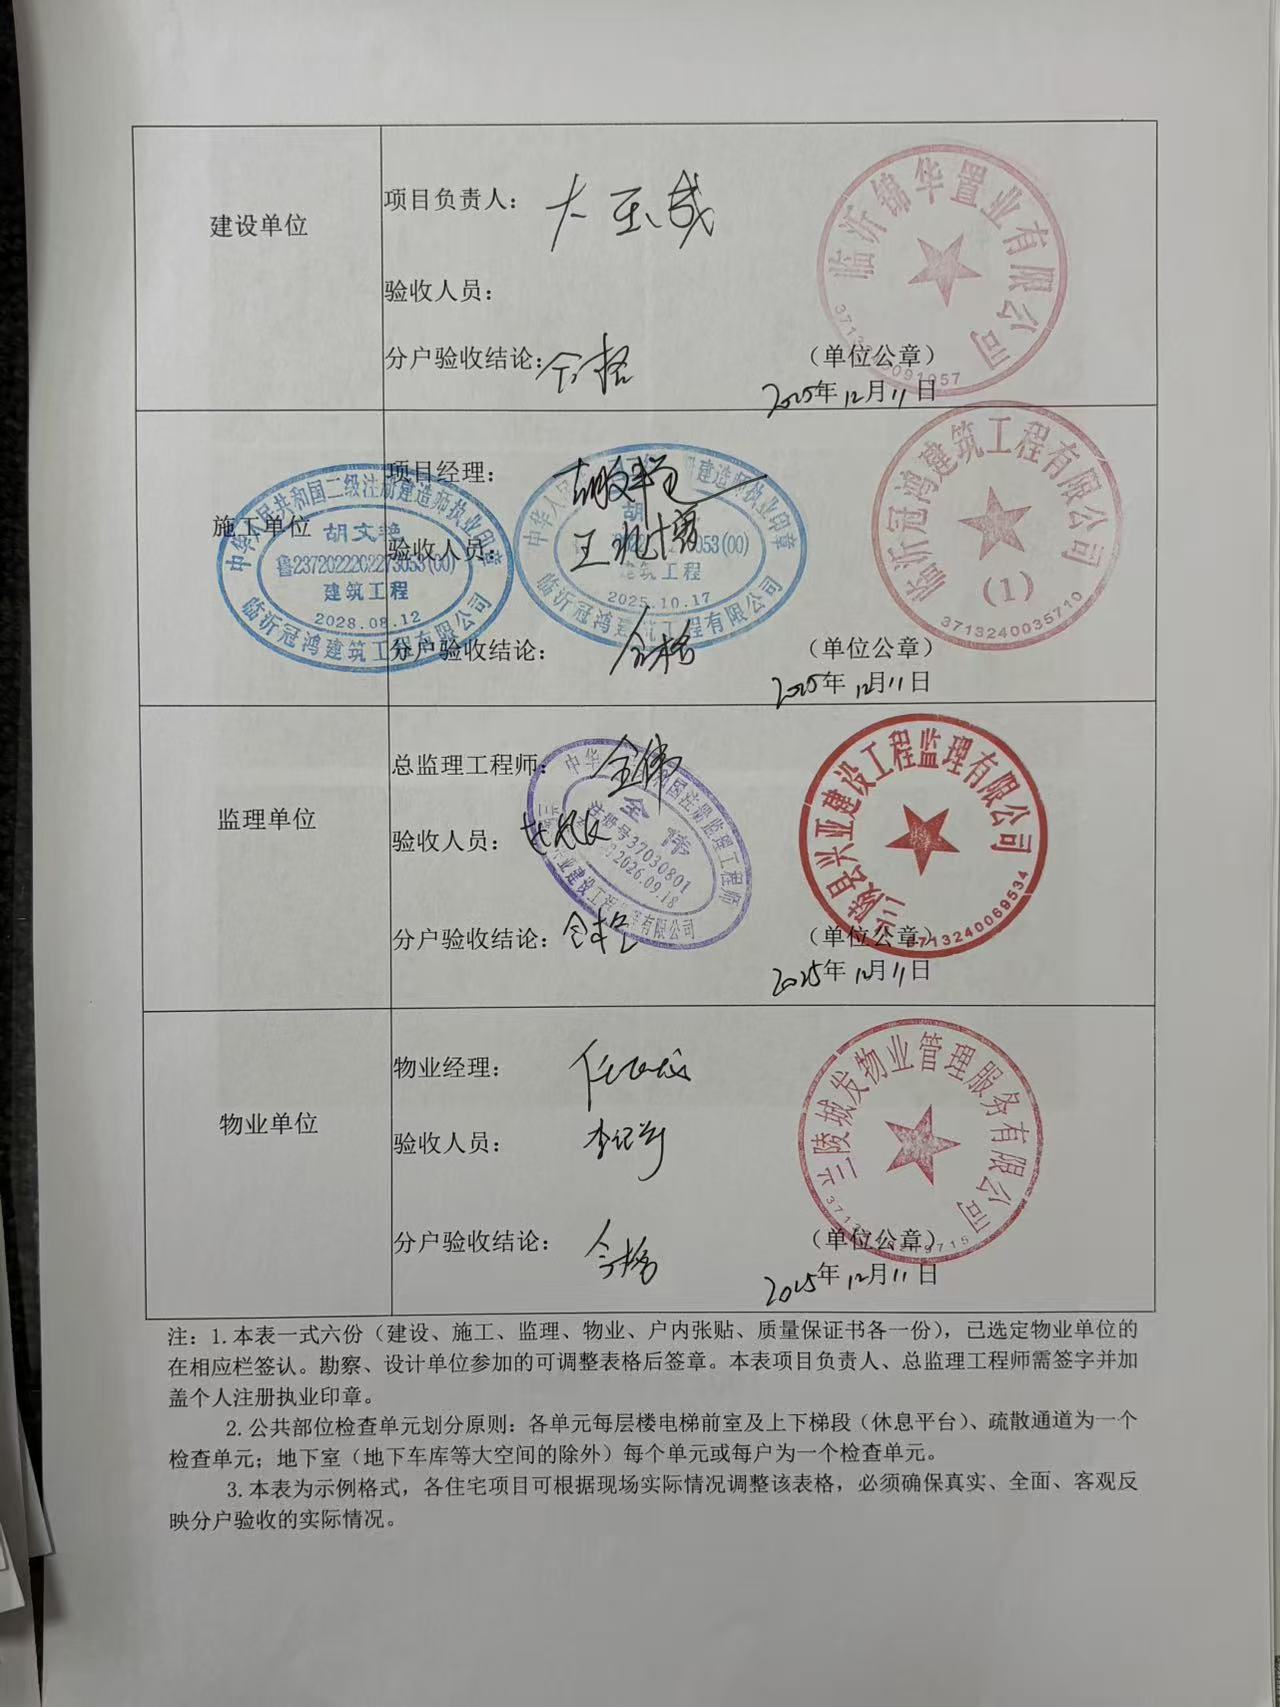 建设单位
项目负责人：
验收人员：
分户验收结论：合格
（单位公章）
2025年12月11日
临沂锦华置业有限公司
施工单位
项目经理：
验收人员：
分户验收结论：合格
（单位公章）
2025年12月11日
中华人民共和国二级注册建造师执业印章
胡文艳
鲁2372022202273053(00)
建筑工程
2028.08.12
临沂冠鸿建筑工程有限公司
建筑工程
2025.10.17
临沂冠鸿建筑工程有限公司
临沂冠鸿建筑工程有限公司
(1)
3713240035710
监理单位
总监理工程师：全伟
验收人员：
分户验收结论：合格
（单位公章）
2025年12月11日
全伟
注册号37030801
2026.09.18
兰陵县兴亚建设工程监理有限公司
3713240069534
物业单位
物业经理：
验收人员：
分户验收结论：合格
（单位公章）
2025年12月11日
兰陵城发物业管理服务有限公司
注：1.本表一式六份（建设、施工、监理、物业、户内张贴、质量保证书各一份），已选定物业单位的
在相应栏签认。勘察、设计单位参加的可调整表格后签章。本表项目负责人、总监理工程师需签字并加
盖个人注册执业印章。
2.公共部位检查单元划分原则：各单元每层楼电梯前室及上下梯段（休息平台）、疏散通道为一个
检查单元；地下室（地下车库等大空间的除外）每个单元或每户为一个检查单元。
3.本表为示例格式，各住宅项目可根据现场实际情况调整该表格，必须确保真实、全面、客观反
映分户验收的实际情况。